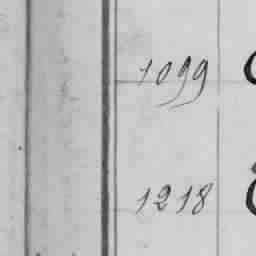 1099
1218